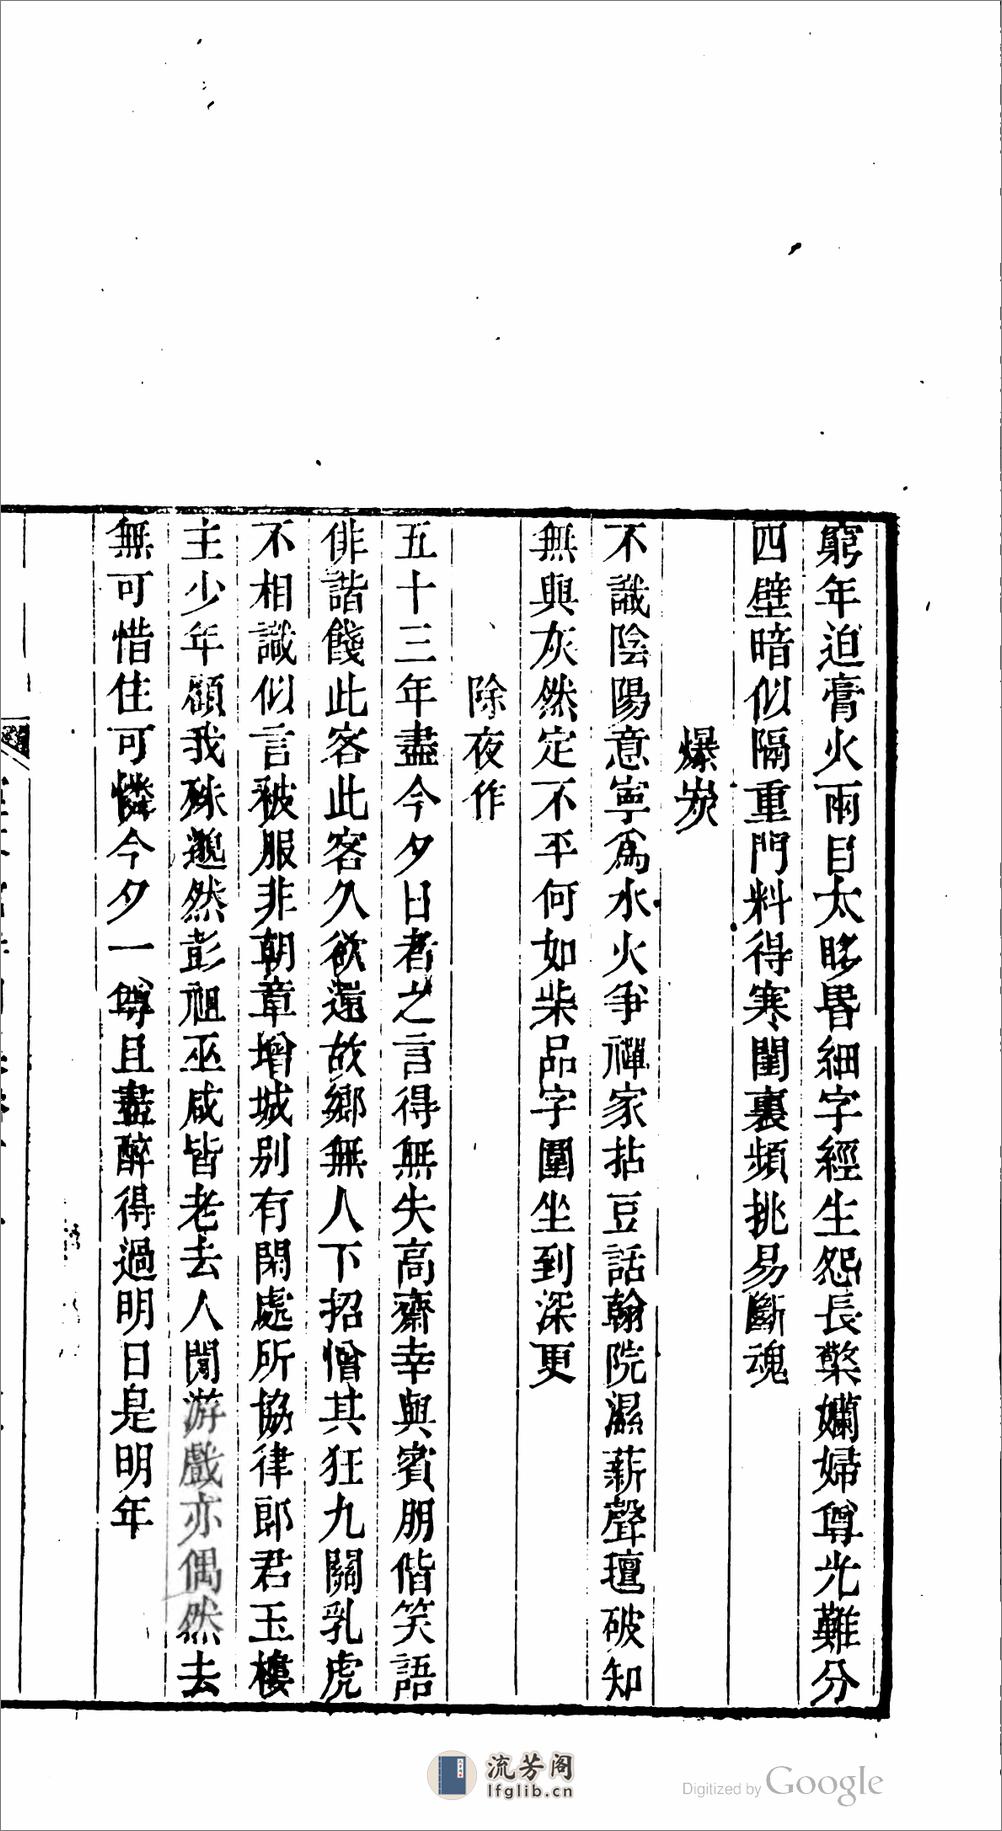 窮年迫膏火兩目太眵昏細字經生怨長檠孏婦尊光難分
四壁暗似隔重門料得寒閨裏頻挑易斷魂
爆炭
不識陰陽意寧爲水火爭禪家拈豆話翰院濕薪聲璮破知
無與灰然定不平何如柴品字圍坐到深更
除夜作
五十三年盡今夕日者之言得無失高齋幸與賓朋偕笑語
俳諧餞此客此客久欲還故鄉無人下招憎其狂九關乳虎
不相識似言被服非朝章增城別有閑處所協律郎君玉樓
主少年顧我殊邈然彭祖巫咸皆老去人閒游戲亦偶然去
無可惜住可憐今夕一尊且盡醉得過明日是明年
流芳阁
lfglib.cn
Digitized by Google